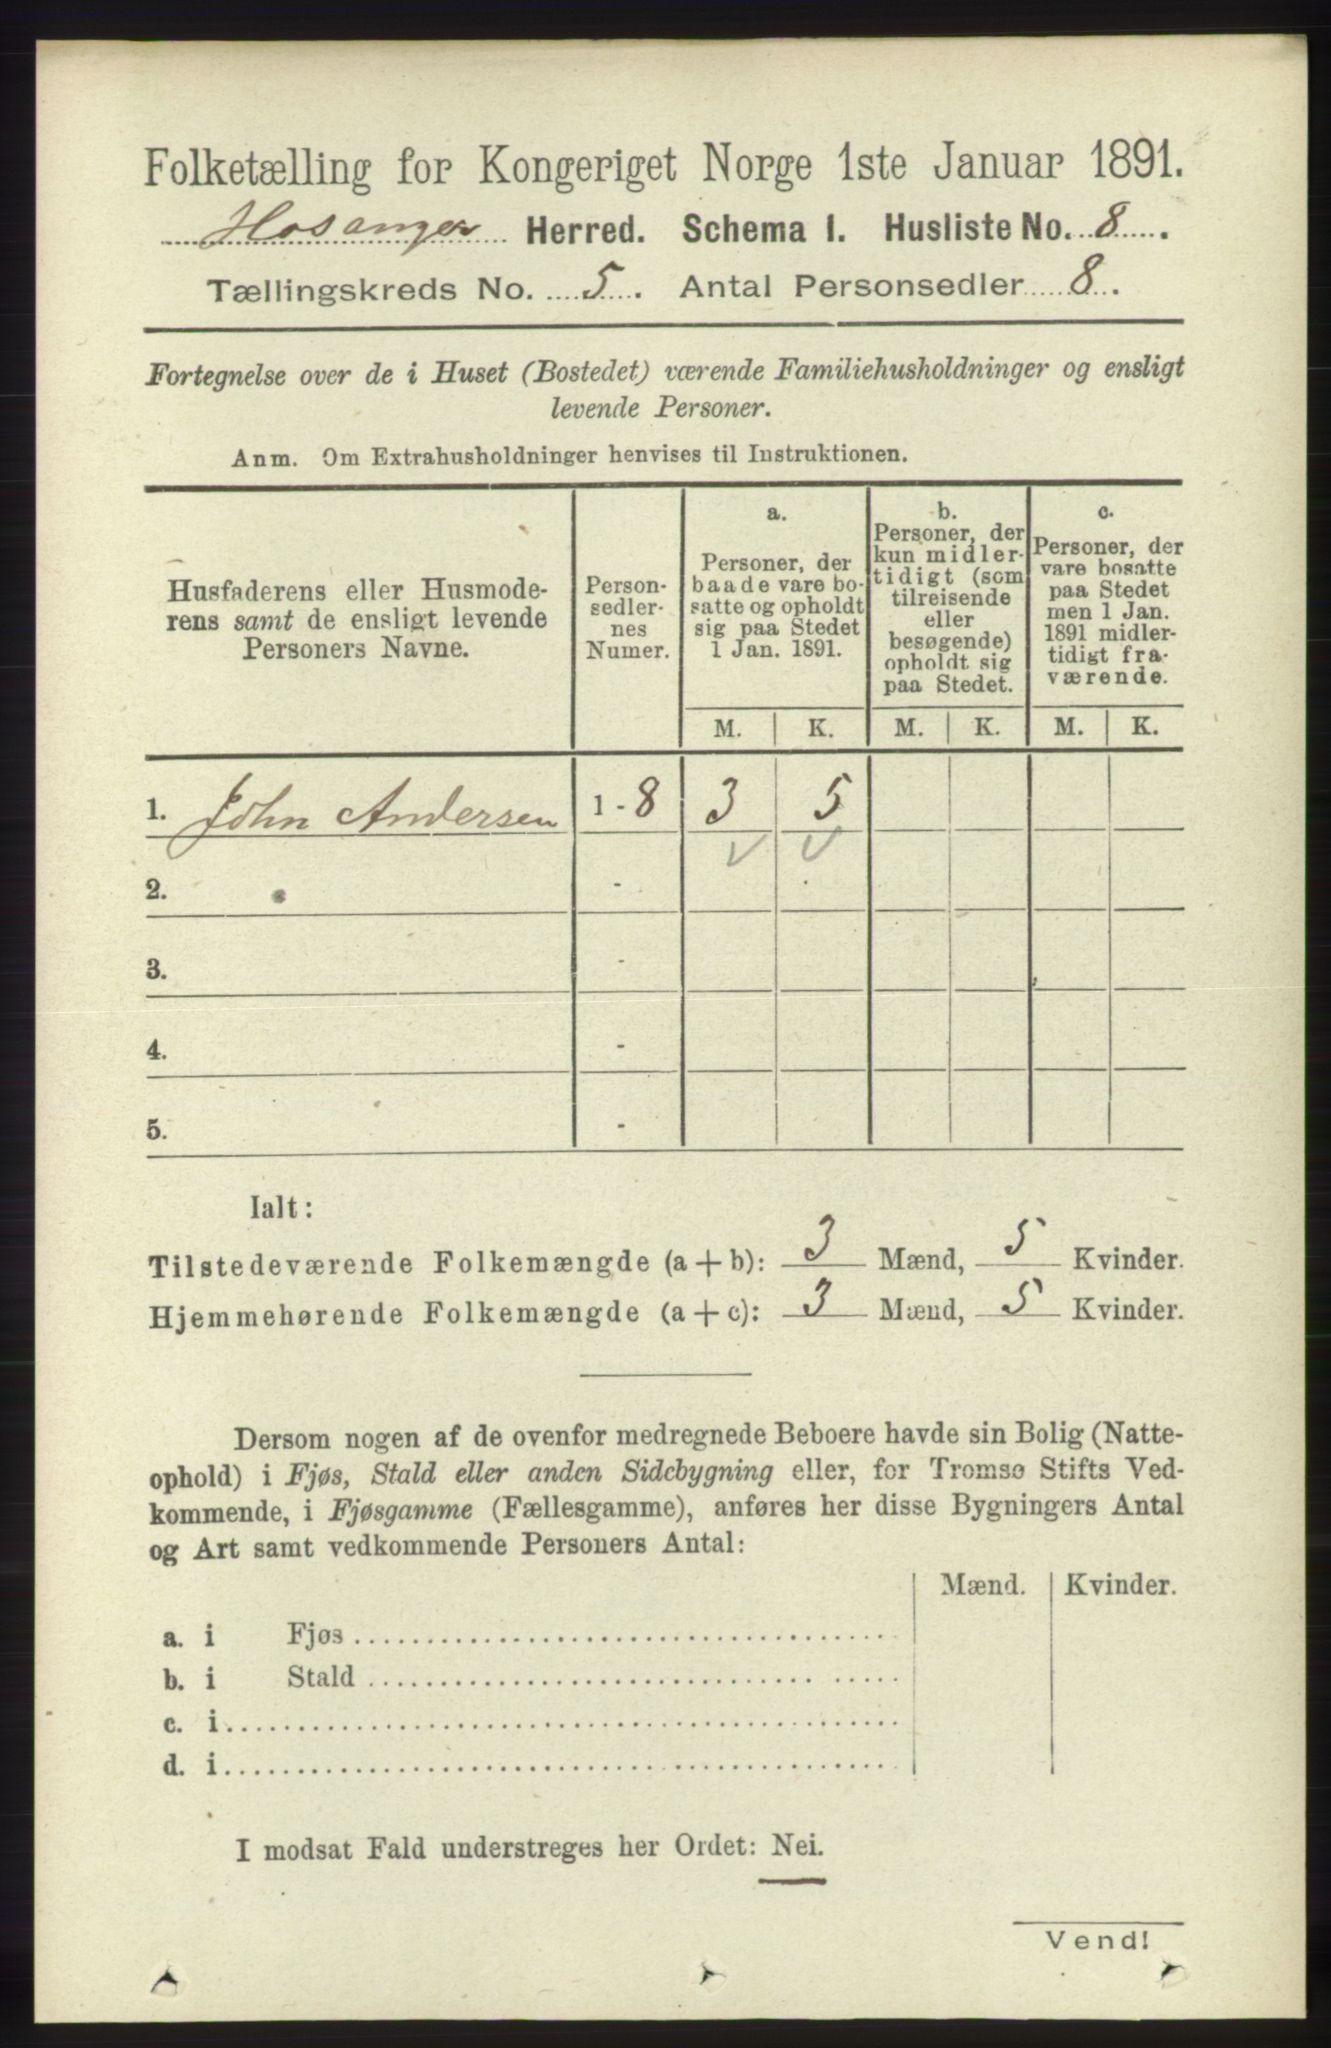 Folketælling for Kongeriget Norge 1ste Januar 1891.
Hosanger Herred. Schema I. Husliste No. 8.
Tællingskreds No. 5. Antal Personsedler 8.
Fortegnelse over de i Huset (Bostedet) værende Familiehusholdninger og ensligt
levende Personer.
Anm. Om Extrahusholdninger henvises til Instruktionen.
Husfaderens eller Husmode-
rens samt de ensligt levende
Personers Navne.
Person-
sedler-
nes
Numer.
a.
Personer, der
baade vare bo-
satte og opholdt
sig paa Stedet
1 Jan. 1891.
b.
Personer, der
kun midler-
tidigt (som
tilreisende
eller
besøgende)
opholdt sig
paa Stedet.
c.
Personer, der
vare bosatte
paa Stedet
men 1 Jan.
1891 midler-
tidigt fra-
værende.
M. K. M. K. M. K.
1. John Andersen 1 - 8 3 5
2. -
3. -
4. -
5. -
Ialt:
Tilstedeværende Folkemængde (a + b): 3 Mænd, 5 Kvinder.
Hjemmehørende Folkemængde (a + c): 3 Mænd, 5 Kvinder.
Dersom nogen af de ovenfor medregnede Beboere havde sin Bolig (Natte-
ophold) i Fjøs, Stald eller anden Sidebygning eller, for Tromsø Stifts Ved-
kommende, i Fjøsgamme (Fællesgamme), anføres her disse Bygningers Antal
og Art samt vedkommende Personers Antal:
Mænd. Kvinder.
a. i Fjøs
b. i Stald
c. i
d. i
I modsat Fald understreges her Ordet: Nei.
Vend!